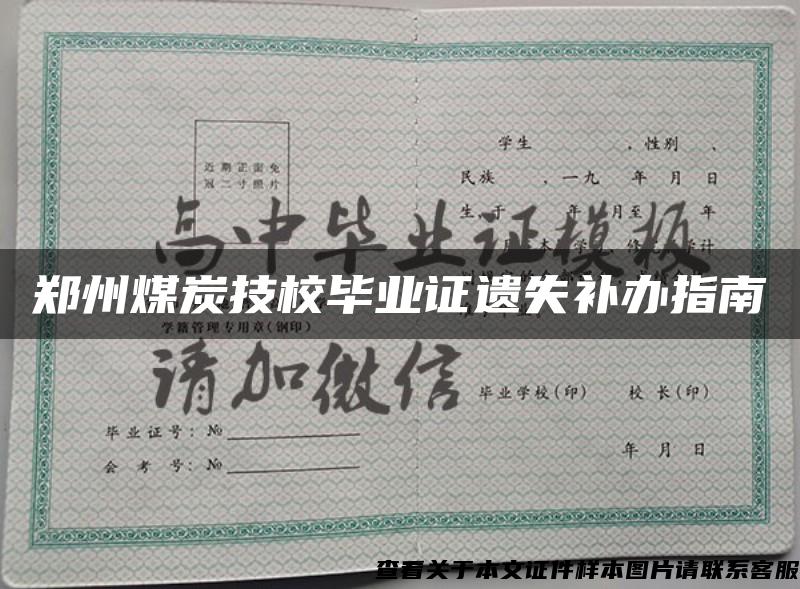 近期正面免
冠二寸照片
学籍管理专用章(钢印)
毕业证号: №
会考号: №
学生 ,性别 、
民族 ,一九 年 月 日
生,于 年 月至 年
毕业学校(印) 校长(印)
年 月 日
高中毕业证模板
请加微信
郑州煤炭技校毕业证遗失补办指南
查看关于本文证件样本图片请联系客服